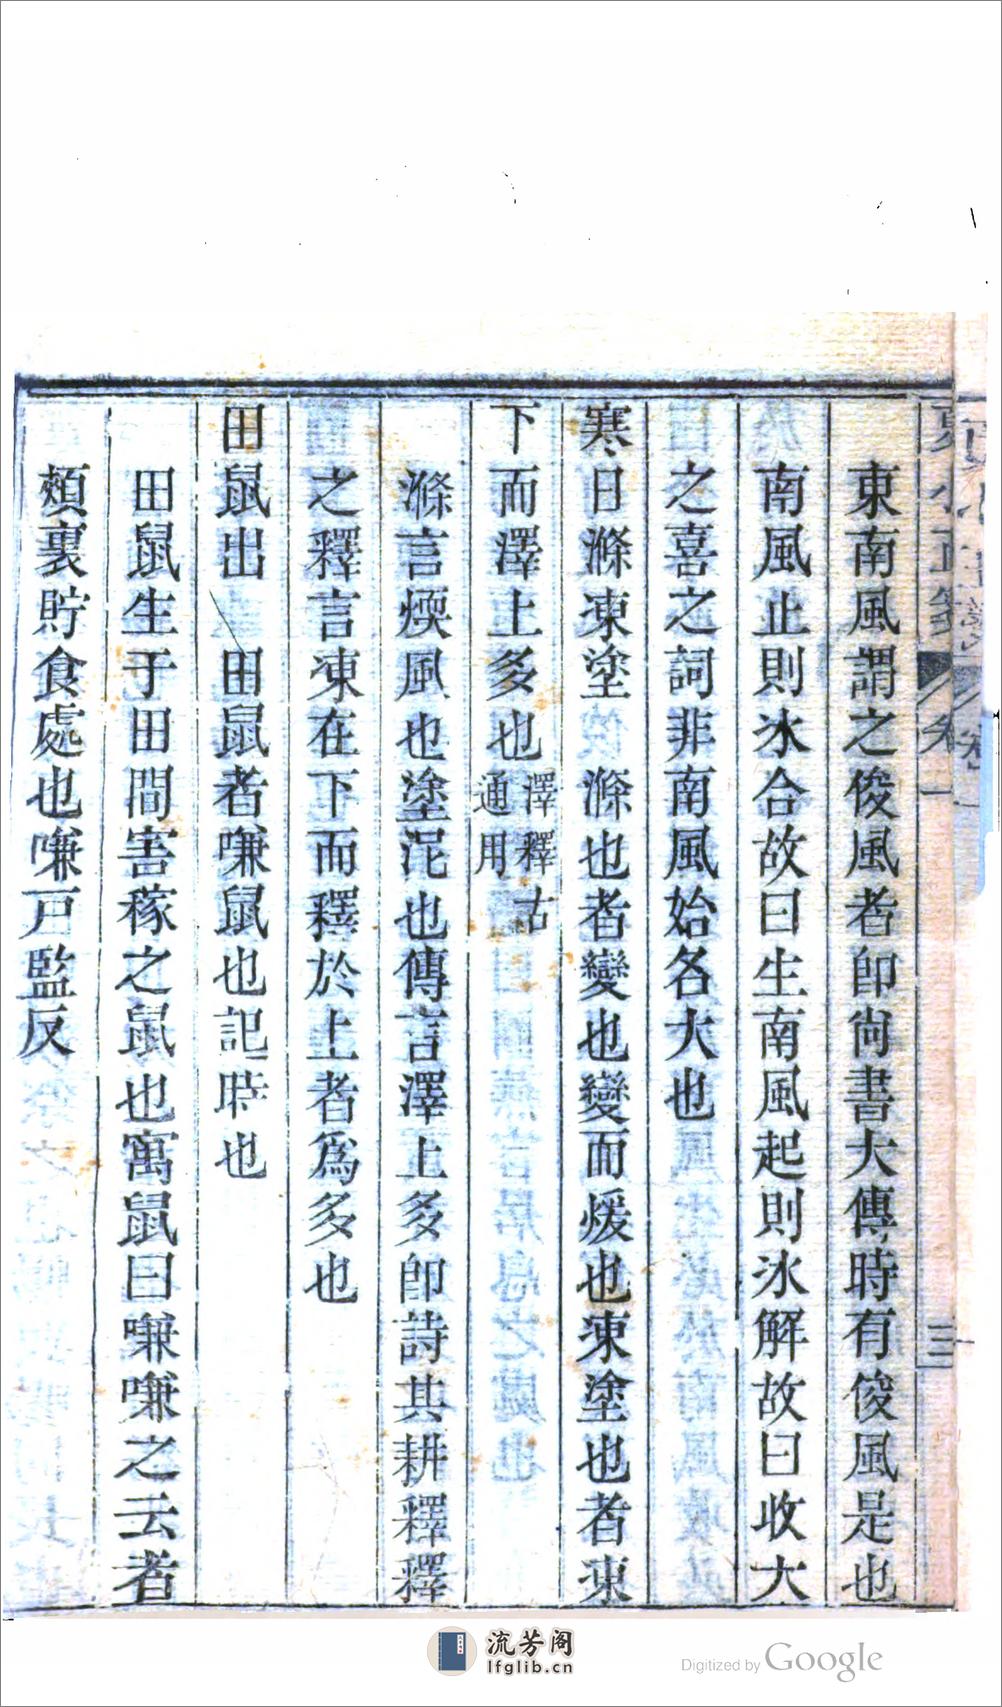 東南風謂之俊風者卽尙書大傳時有俊風是也
南風止則氷合故曰生南風起則氷解故曰收大
之喜之詞非南風始各大也
寒日滌凍塗　滌也者變也變而煖也凍塗也者凍
下而澤上多也澤釋古通用
滌言煗風也塗泥也傳言澤上多卽詩其耕釋釋
之釋言凍在下而釋於上者爲多也
田鼠出　田鼠者嗛鼠也記時也
田鼠生于田間害稼之鼠也寓鼠曰嗛嗛之云者
頰裏貯食處也嗛戸監反
夏小正
卷一
三
流芳阁
lfglib.cn
Digitized by Google